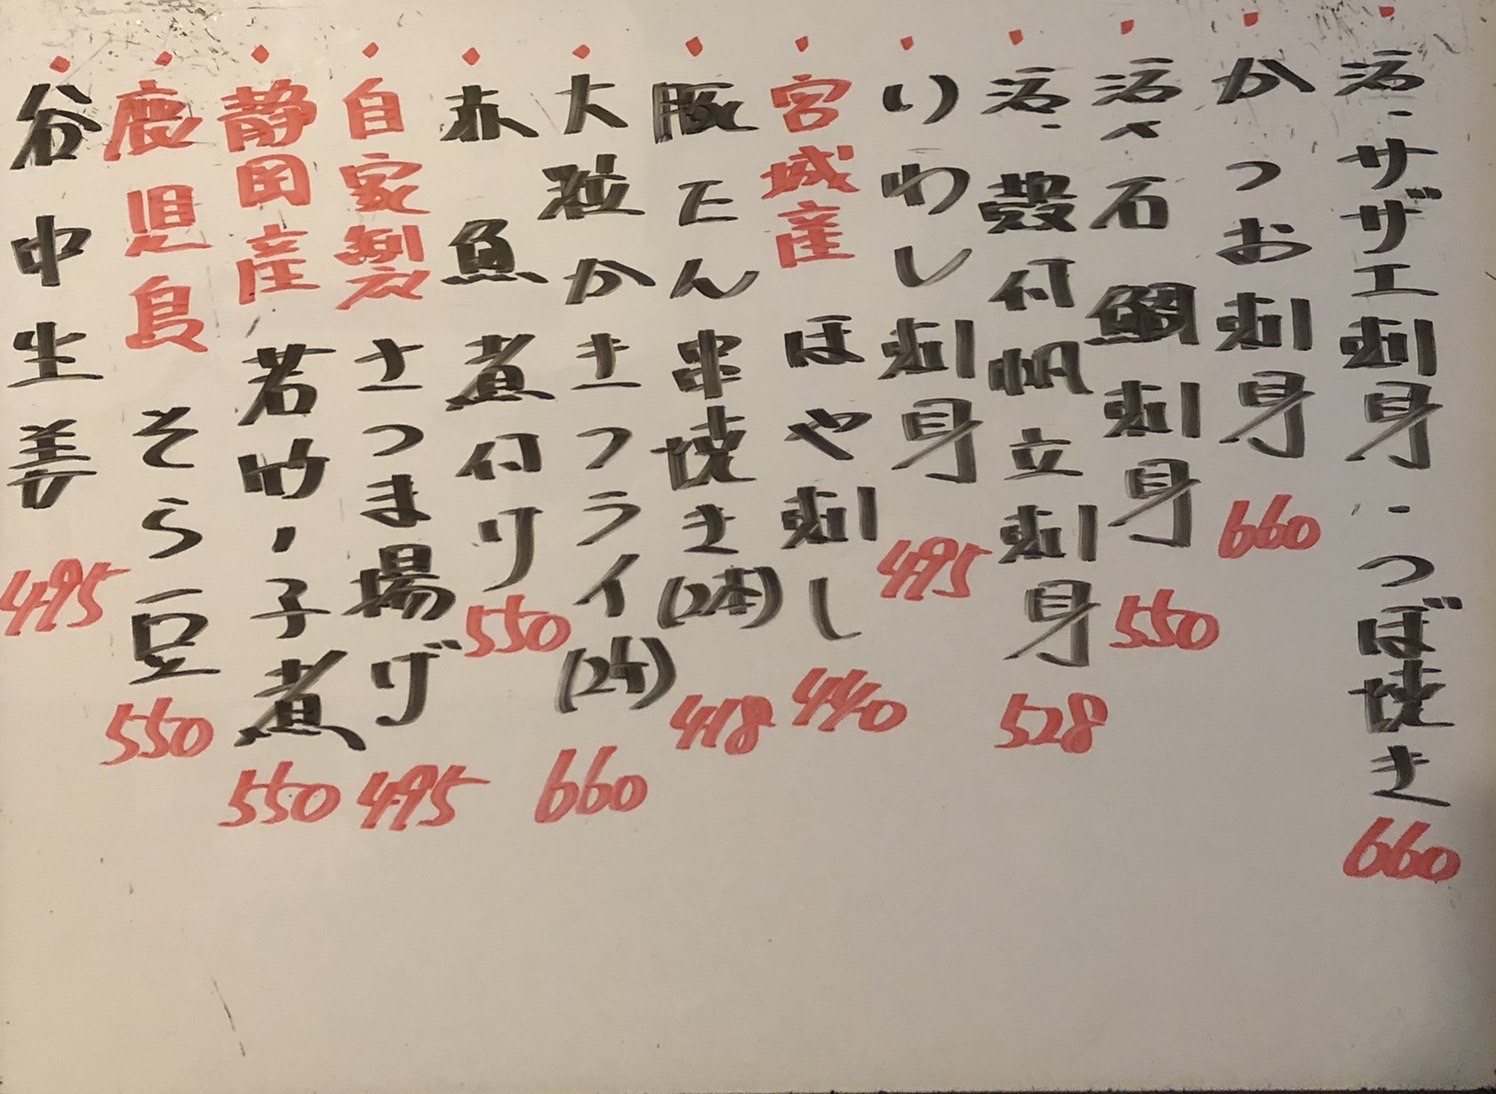 活サザエ刺身・つぼ焼き 660
かつお刺身 660
活〆石鯛刺身 550
活殻付帆立刺身 528
いわし刺身 495
宮城産 ほや刺し 440
豚たん串焼き(2本) 418
大粒かきフライ(2ケ) 660
赤魚煮付け 550
自家製さつま揚げ 495
静岡産 若竹ノ子煮 550
鹿児島 そら豆 550
谷中生姜 495